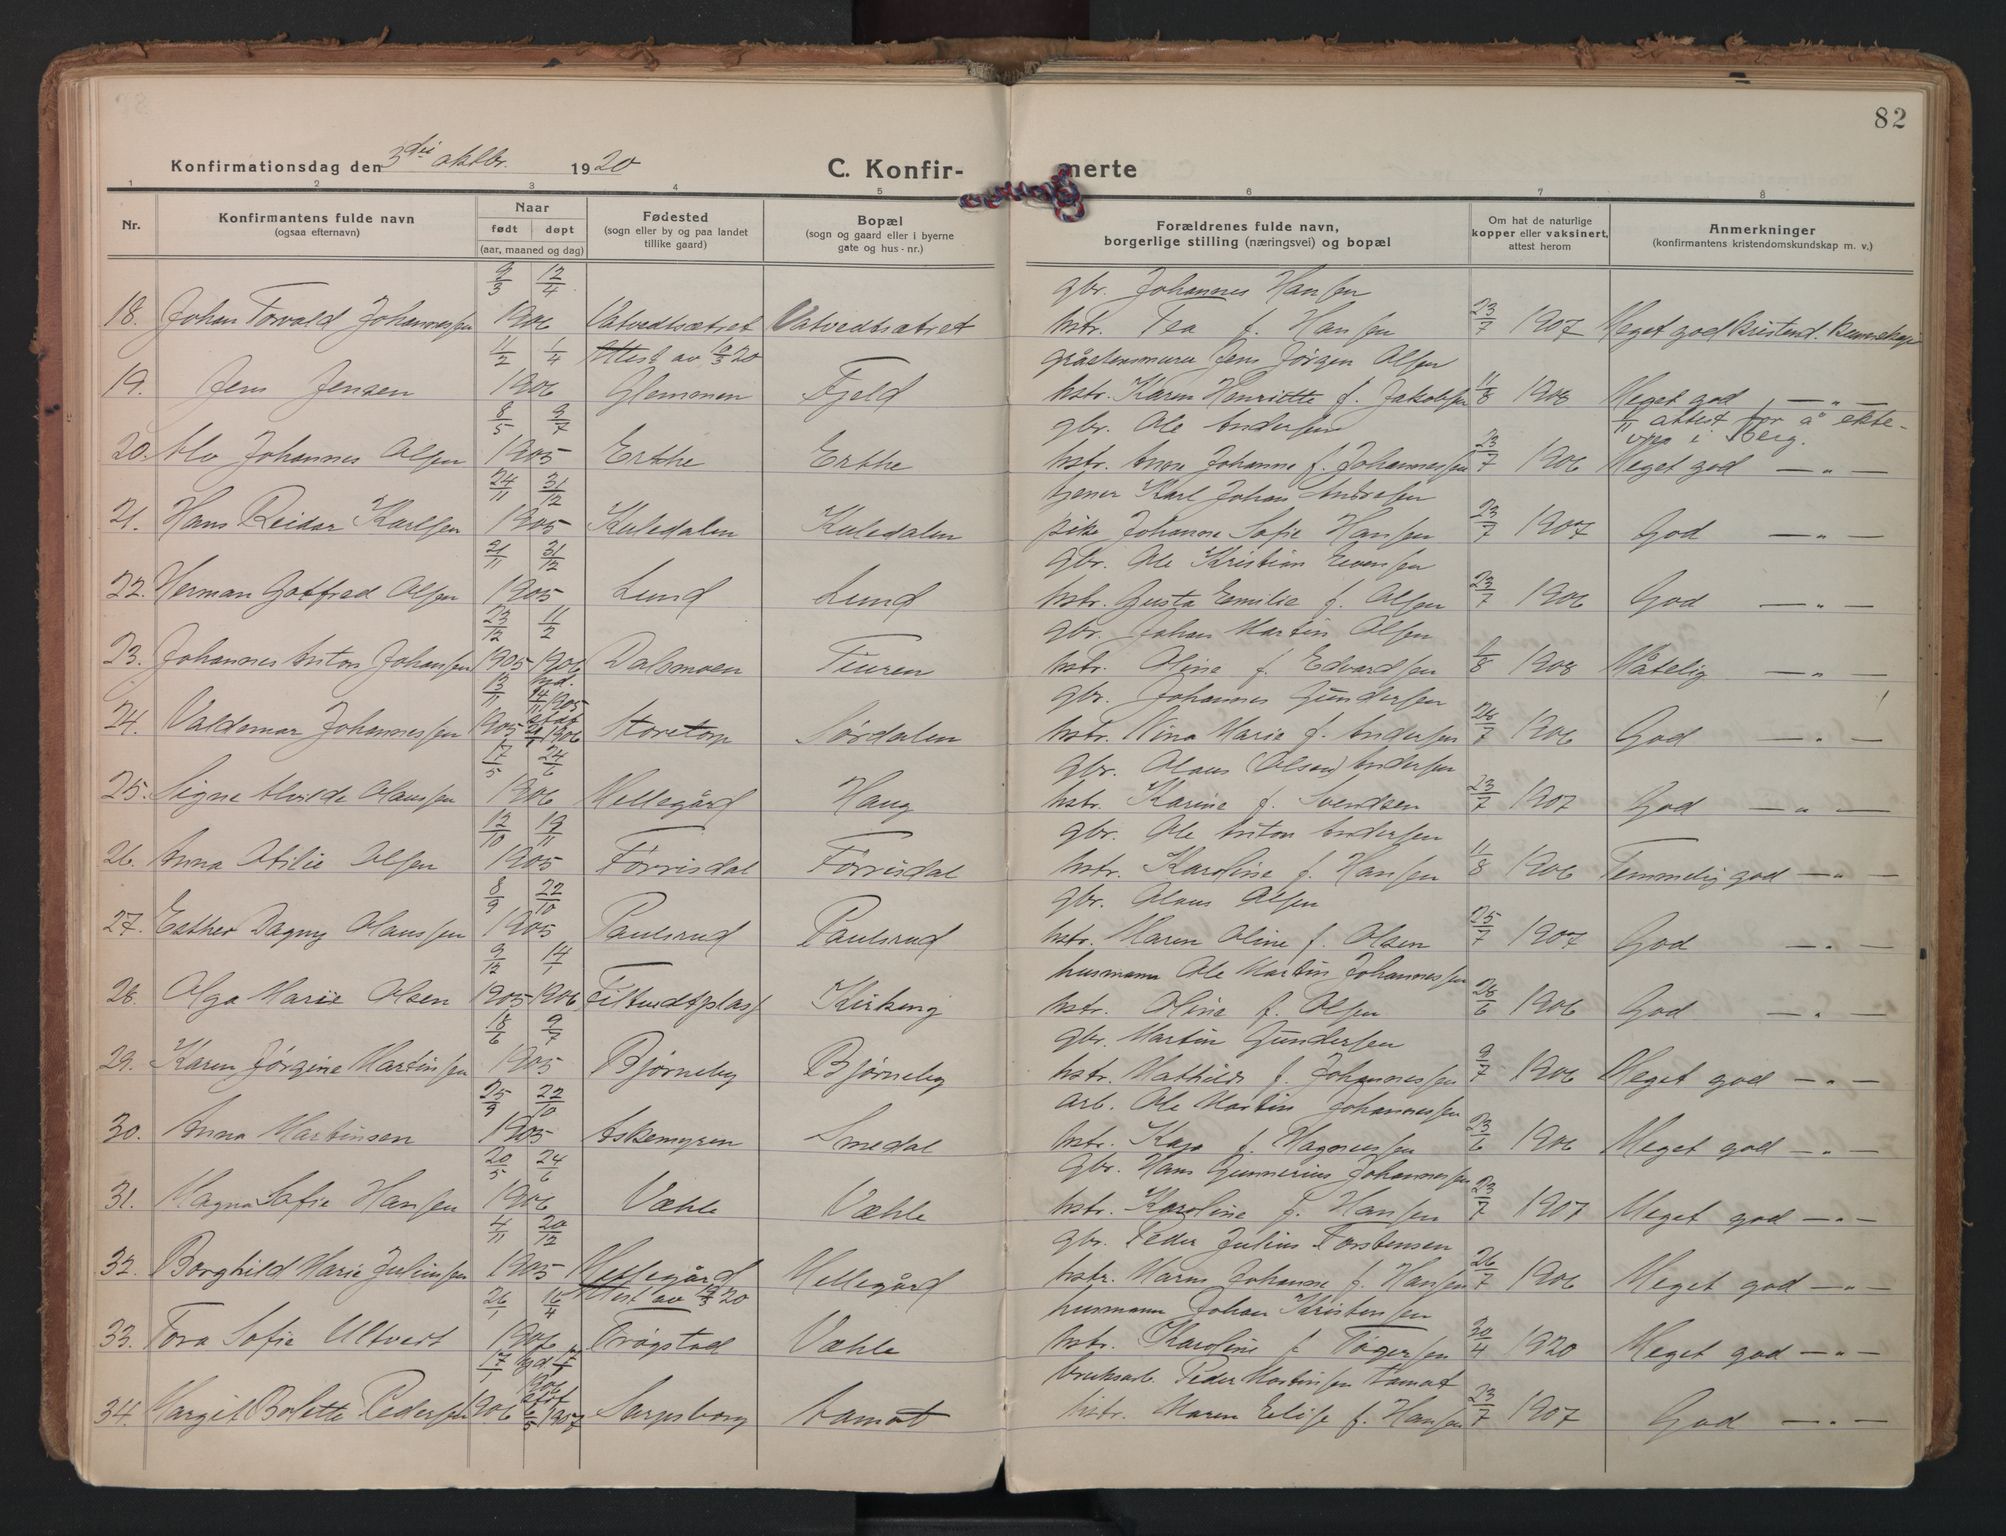 82
Konfirmationsdag den 3die oktbr. 1920 C. Konfirmerte
1 2 3 4 5 6 7 8
Nr. Konfirmantens fulde navn (ogsaa efternavn) Naar født døpt (aar, maaned og dag) Fødested (sogn eller by og paa landet tillike gaard) Bopæl (sogn og gaard eller i byerne gate og hus-nr.) Forældrenes fulde navn, borgerlige stilling (næringsvei) og bopæl Om hat de naturlige kopper eller vaksinert, attest herom Anmerkninger (konfirmantens kristendomskundskap m. v.)
9/3 12/4 gbr. Johannes Hansen
18. Johan Torvald Johannessen 1906 Vatvedtsætret Vatvedtsætret hstr. Tea f. Hansen 23/7 1907 Meget god Kristend. Kunnskap
11/2 1/4 Attest av 19/3 20 gråstensmurer Jens Jørgen Olsen
19. Jens Jensen 1906 Glemmen Fjeld hstr. Karen Henriette f. Jakobsen 11/8 1908 Meget god — „ —
8/5 9/7 gbr. Ole Andersen attest for å ekte-
vies i Berg.
20. Alv Johannes Olsen 1905 Erthe Erthe hstr. Anne Johanne f. Johannessen 23/7 1906 Meget god — „ —
24/11 31/12 tjener Karl Johan Andresen
21. Hans Reidar Karlsen 1905 Kuledalen Kuledalen pike Johanne Sofie Hansen 23/7 1907 God — „ —
21/11 31/12 gbr. Ole Kristian Evensen
22. Herman Gotfred Olsen 1905 Lund Lund hstr. Gusta Emilie f. Olsen 23/7 1906 God — „ —
23/12 11/2 gbr. Johan Martin Olsen
23. Johannes Anton Johansen 1905 1906 Dalsmoen Tiuren hstr. Oline f. Edvardsen 1/8 1908 Måtelig — „ —
13/11 hjd. 14/11 1905 gbr. Johannes Gundersen
24. Valdemar Johannessen 1905 stad 1906 Storetorp Sørdalen hstr. Nina Marie f. Andersen 28/7 1906 God — „ —
17/5 24/6 gbr. Olaus (Olsen) Andersen
25. Signe Alvilde Olaussen 1906 Mellegård Haug hstr. Karine f. Svendsen 23/7 1907 God — „ —
12/10 19/11 gbr. Ole Anton Andersen
26. Anna Otilie Olsen 1905 Førrisdal Førrisdal hstr. Karoline f. Hansen 11/8 1906 Temmelig god — „ —
8/9 22/10 gbr. Olaus Olsen
27. Esther Dagny Olaussen 1905 Paulsrud Paulsrud hstr. Maren Oline f. Olsen 25/7 1907 God — „ —
9/12 14/1 husmann Ole Martin Johannessen
28. Olga Marie Olsen 1905 1906 Kirkeng hstr. Oline f. Olsen 28/6 1906 God — „ —
18/6 9/7 gbr. Martin Gundersen
29. Karen Jørgine Martinsen 1905 Bjørneby Bjørneby hstr. Mathilde f. Johannessen 9/7 1906 Meget god — „ —
25/9 22/10 arb. Ole Martin Johannessen
30. Anna Martinsen 1905 Askemyren Smedal hstr. Kaja f. Magnussen 23/6 1906 Meget god — „ —
20/5 24/6 gbr. Hans Gunnerius Johannessen
31. Magna Sofie Hansen 1906 Væhle Væhle hstr. Karoline f. Hansen 23/7 1907 Meget god — „ —
4/11 20/12 gbr. Peder Julius Torstensen
32. Borghild Marie Juliussen 1905 Mellegård Mellegård hstr. Maren Johanne f. Hansen 26/7 1906 Meget god — „ —
26/1 16/4 Attest av 19/3 20 husmann Johan Kristensen
33. Tora Sofie Ultvedt 1906 Trøgstad Væhle hstr. Karoline f. Tøgersen 30/4 1920 Meget god — „ —
17/1 hjd 17/1 1906 bruksarb. Peder Martinsen Aamot
34. Margit Bolette Pedersen 1906 stad 6/5 1907 Sarpsborg Aamot hstr. Maren Elise f. Hansen 23/7 1907 God — „ —